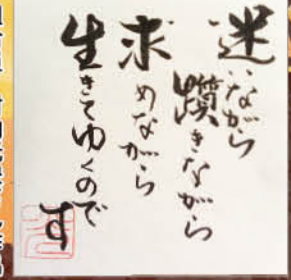 迷いながら
躓きながら
求めながら
生きてゆくのです